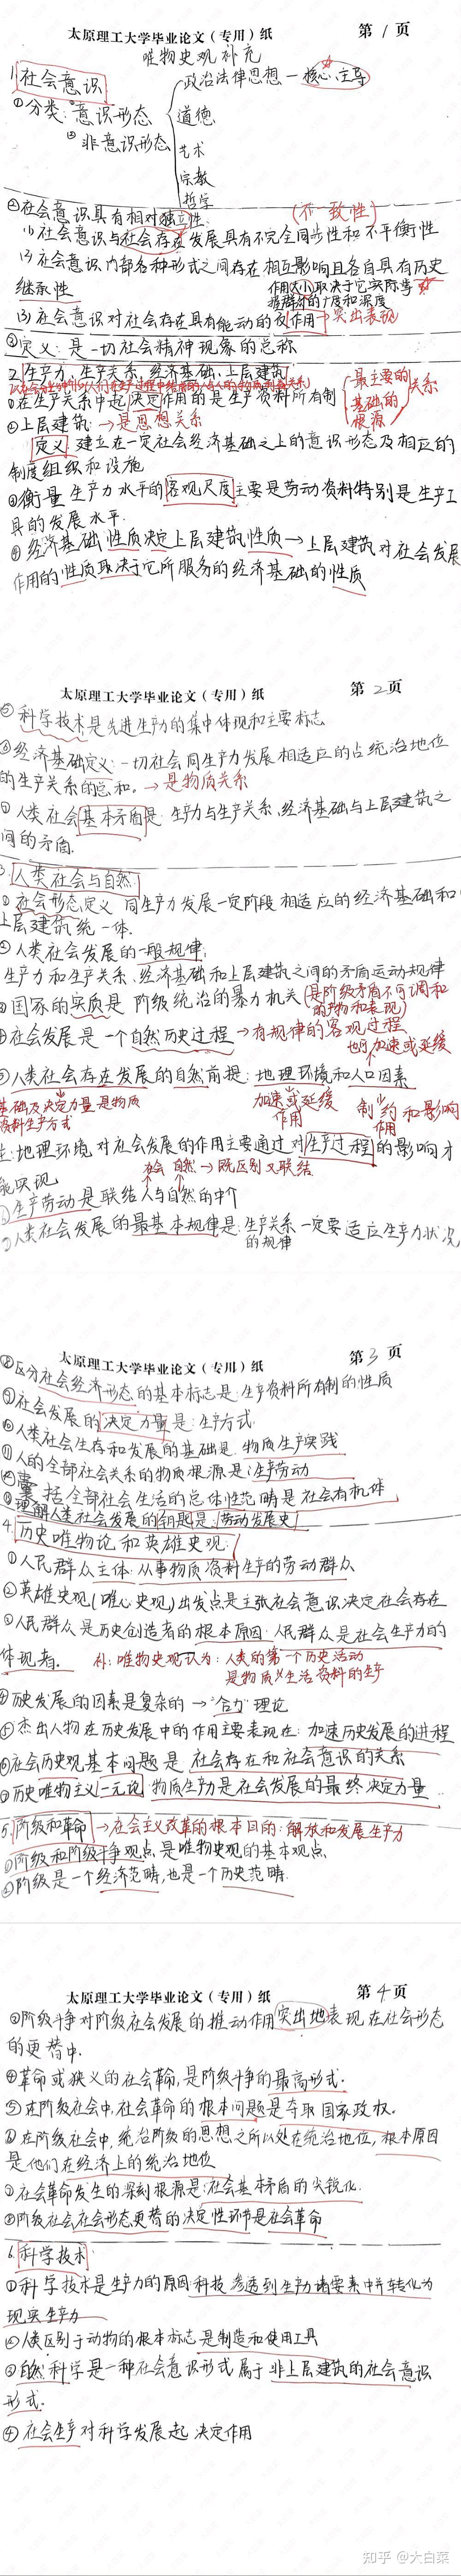 太原理工大学毕业论文（专用）纸 第1页
唯物史观补充
1.社会意识
①分类：意识形态
②非意识形态
政治法律思想—核心、主导
道德
艺术
宗教
哲学
②社会意识具有相对独立性： (不一致性)
(1)社会意识与社会存在发展具有不完全同步性和不平衡性
(2)社会意识内部各种形式之间存在相互影响且各自具有历史
继承性
作用大小取决于它实际掌
握群众的广度和深度
(3)社会意识对社会存在具有能动的反作用→突出表现
③定义：是一切社会精神现象的总称
2.生产力、生产关系、经济基础、上层建筑
①在生产关系中起决定作用的是生产资料所有制
最主要的
基础的
根源
关系
②上层建筑：→是思想关系
定义 建立在一定社会经济基础之上的意识形态及相应的
制度组织和设施
③衡量生产力水平的客观尺度主要是劳动资料特别是生产工
具的发展水平.
④经济基础性质决定上层建筑性质→上层建筑对社会发展
作用的性质取决于它所服务的经济基础的性质
太原理工大学毕业论文（专用）纸 第2页
⑤科学技术是先进生产力的集中体现和主要标志
⑥经济基础定义：一切社会同生产力发展相适应的占统治地位
的生产关系的总和。→是物质关系
⑦人类社会基本矛盾是：生产力与生产关系、经济基础与上层建筑之
间的矛盾.
3.人类社会与自然
①社会形态定义 同生产力发展一定阶段相适应的经济基础和
上层建筑统一体.
②人类社会发展的一般规律：
生产力和生产关系、经济基础和上层建筑之间的矛盾运动规律
③国家的实质是阶级统治的暴力机关(是阶级矛盾不可调和
的产物和表现)
④社会发展是一个自然历史过程→有规律的客观过程
也可加速或延缓
⑤人类社会存在发展的自然前提：地理环境和人口因素
基础及决定力量是物质
资料生产方式
加速或延缓
作用
制约和影响
作用
注：地理环境对社会发展的作用主要通过对生产过程的影响才
能实现
社会 自然→既区别又联结
⑥生产劳动是联结人与自然的中介
⑦人类社会发展的最基本规律是：生产关系一定要适应生产力状况
的规律
太原理工大学毕业论文（专用）纸 第3页
⑧区分社会经济形态的基本标志是：生产资料所有制的性质
⑨社会发展的决定力量是：生产方式.
⑩人类社会生存和发展的基础是：物质生产实践
⑪人的全部社会关系的物质根源是：生产劳动
⑫囊括全部社会生活的总体性范畴是社会有机体
⑬理解人类社会发展的钥匙是：劳动发展史
4.历史唯物论和英雄史观：
①人民群众主体：从事物质资料生产的劳动群众
②英雄史观(唯心史观)出发点是主张社会意识决定社会存在
③人民群众是历史创造者的根本原因：人民群众是社会生产力的
体现者.
补：唯物史观认为：人类的第一个历史活动
是物质生活资料的生产
④历史发展的因素是复杂的→“合力”理论
⑤杰出人物在历史发展中的作用主要表现在：加速历史发展的进程
⑥社会历史观基本问题是社会存在和社会意识的关系
⑦历史唯物主义一元论 物质生产力是社会发展的最终决定力量.
5.阶级和革命→社会主义改革的根本目的：解放和发展生产力
①阶级和阶级斗争观点是唯物史观的基本观点
②阶级是一个经济范畴，也是一个历史范畴.
太原理工大学毕业论文（专用）纸 第4页
③阶级斗争对阶级社会发展的推动作用突出地表现在社会形态
的更替中.
④革命或狭义的社会革命，是阶级斗争的最高形式.
⑤在阶级社会中，社会革命的根本问题是夺取国家政权。
⑥在阶级社会中，统治阶级的思想之所以处在统治地位，根本原因
是他们在经济上的统治地位
⑦社会革命发生的深刻根源是：社会基本矛盾的尖锐化.
⑧阶级社会社会形态更替的决定性环节是社会革命
6.科学技术
①科学技术是生产力的原因：科技渗透到生产力诸要素中并转化为
现实生产力
②人类区别于动物的根本标志是制造和使用工具
③自然科学是一种社会意识形式属于非上层建筑的社会意识
形式.
④社会生产对科学发展起决定作用
知乎 @大白菜